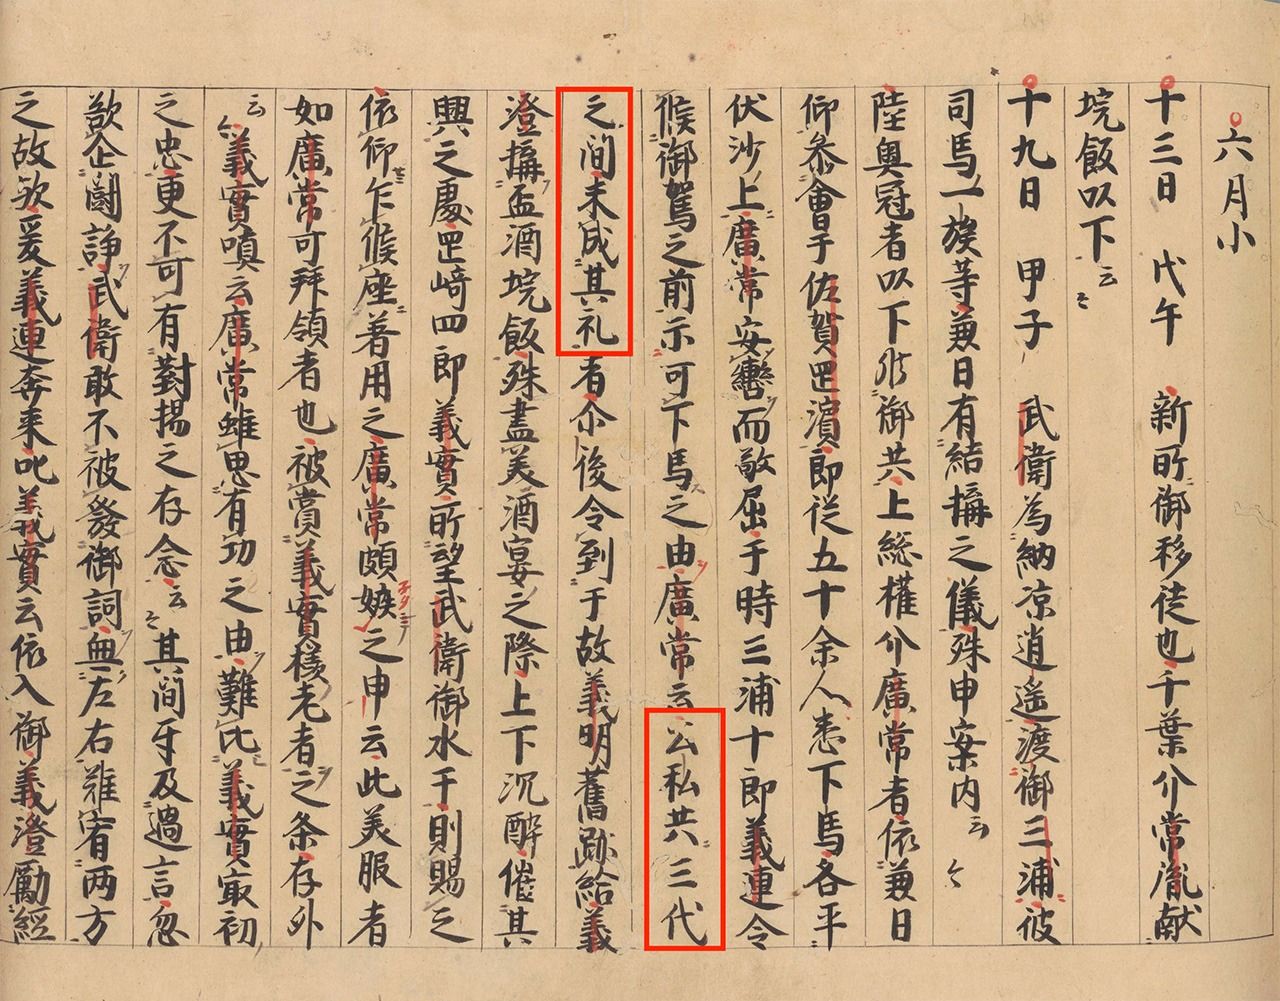 六月小
十三日 戊午 新所御移徙也千葉介常胤献
垸飯以下云々
十九日 甲子 武衛為納凉逍遥渡御三浦彼
司馬一族等兼日有結搆之儀殊申案内云々
陸奥冠者以下候御共上総権介廣常者依兼日
仰参會于佐賀罡濵郎従五十余人悉下馬各平
伏沙上廣常安轡而敬屈于時三浦十郎義連令
候御駕之前示可下馬之由廣常云公私共三代
之間未成其礼者尒後令到于故義明舊跡給義
澄搆盃酒垸飯殊盡美酒宴之際上下沉酔催其
興之處罡﨑四郎義實所望武衛御水干則賜之
依仰乍候座着用之廣常頗嫉之申云此美服者
如廣常可拝領者也被賞義實様老者之条存外
云々義實嗔云廣常雖思有功之由難比義實最初
之忠更不可有對揚之存念云々其間牙及過言忽
欲企闘諍武衛敢不被發御詞無左右難宥両方
之故欤爰義連奔来叱義實云依入御義澄勵経